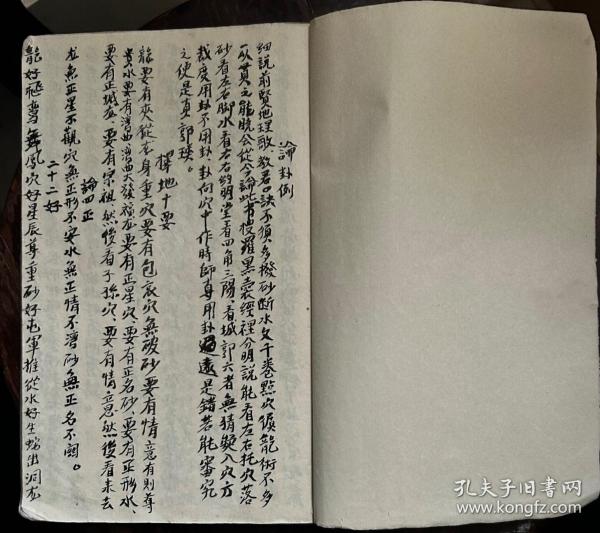 論卦例
細說前賢地理歌教君口訣不須多撥砂斷水文千卷點穴猴龍術不多
一以貫之龍曉会從今論此書授羅黑囊經裡分明說能看左右托穴落
砂看左右脚水看左右約明堂看四角三陽看城郭六者無猜疑入穴方
裁度用卦不用卦卦向穴中作時師專用卦過遠是錯若能審究
之便是真郭璞。
擇地十要
龍要有夾從右身重穴要有包裹穴無破砂要有情意有則尊
貴水要有灣曲灣曲大發福龙要有正星穴要有正名砂要有正形水
要有正城龙要有宗祖然後看子孫穴要有情意思然後看来去
論四正
龙無正星不觀穴無正形不安水無正情不灣砂無正名不関。
二十二好
龍好飛鸞舞鳳穴好星辰尊重砂好屯軍推從水好生蛇出洞龙
孔夫子旧書网
www.kongfz.com